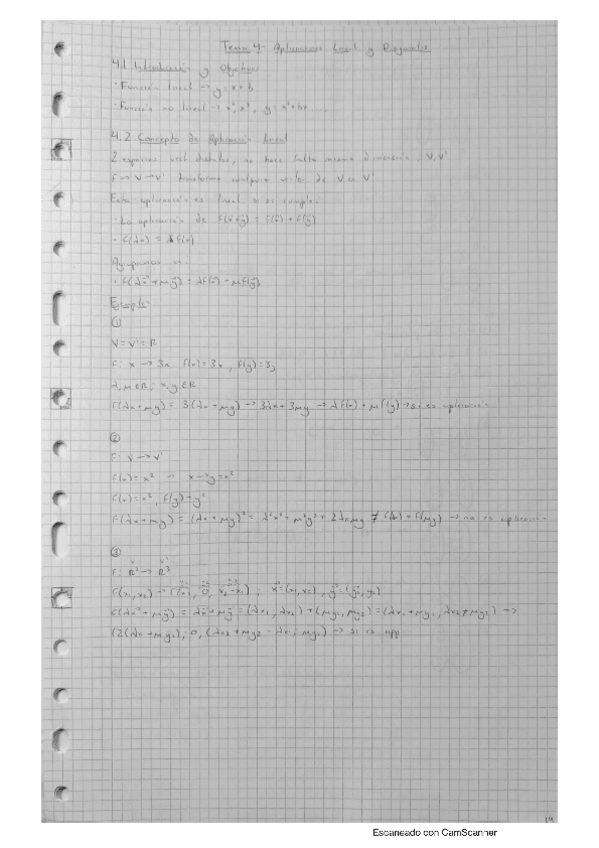 Tema 4- Aplicaciones lineal y
4.1 Introducción y Objetivos
· Función lineal → y = x + b
· Función no lineal → x², x³, y = x²+bx ....
4.2 Concepto de Aplicación lineal
2 espacios vect distintos, no hace falta misma dimensión, V, V'
F → V → V' transforma cualquier de V en V'
Esta aplicación es lineal si se cumple:
· La aplicación de f(x+y) = f(x) + f(y)
· f(λx) = λf(x)
· f(λx + μy) = λf(x) + μf(y)
Ejemplo:
①
V = V' = R
f: x → 3x f(x) = 3x, f(y) = 3y
λ, μ ∈ R; x, y ∈ R
f(λx + μy) = 3(λx + μy) → 3λx + 3μy → λf(x) + μf(y) → si es aplicación
②
F: V → V'
f(x) = x² → x → y = x²
f(x) = x², f(y) = y²
f(λx + μy) = (λx + μy)² = λ²x² + μ²y² + 2λxμy ≠ f(λx) + f(μy) → no es aplicación
③
f: R² → R³
f(x₁, x₂) → (2x₁, 0, x₂ - x₁), x = (x₁, x₂), y = (y₁, y₂)
f(λx + μy) = λx + μy = (λx₁, λx₂) + (μy₁, μy₂) = (λx₁ + μy₁, λx₂ + μy₂) →
(2(λx + μy₁), 0, (λx₂ + μy₂ - λx₁ - μy₁) → si es app
Escaneado con CamScanner